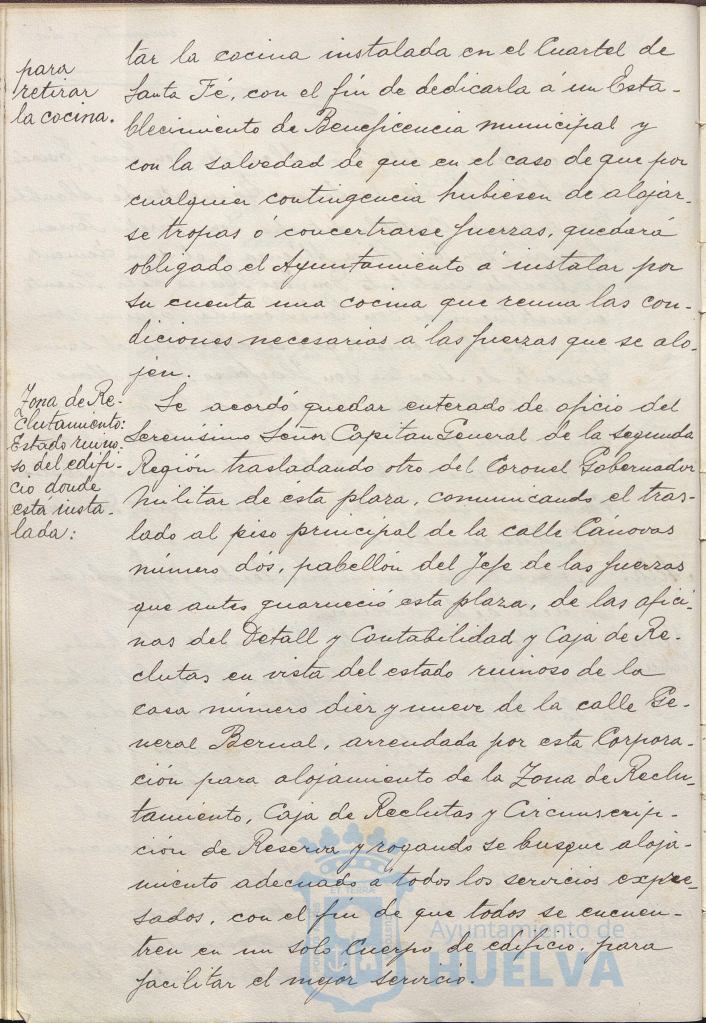 para
retirar
la cocina.
tar la cocina instalada en el Cuartel de
Santa Fé, con el fin de dedicarla á un Esta-
blecimiento de Beneficencia municipal y
con la salvedad de que en el caso de que por
cualquier contingencia hubiesen de alojar-
se tropas ó concertrarse fuerzas, quedará
obligado el Ayuntamiento á instalar por
su cuenta una cocina que reuna las con-
diciones necesarias á las fuerzas que se alo-
jen.
Zona de Re-
clutamiento:
Estado ruino-
so del edifi-
cio donde
está insta-
lada:
Se acordó quedar enterado de oficio del
Serenísimo Señor Capitan General de la segunda
Región trasladando otro del Coronel Gobernador
Militar de ésta plaza, comunicando el tras-
lado al piso principal de la calle Cánovas
número dós, pabellón del Jefe de las fuerzas
que antes guarneció esta plaza, de las ofici-
nas del Detall y Contabilidad y Caja de Re-
clutas en vista del estado ruinoso de la
casa número diez y nueve de la calle Ge-
neral Bernal, arrendada por esta Corpora-
ción para alojamiento de la Zona de Reclu-
tamiento, Caja de Reclutas y Circunscrip-
ción de Reserva y rogando se busque aloja-
miento adecuado a todos los servicios expre-
sados, con el fin de que todos se encuen-
tren en un solo Cuerpo de edificio, para
facilitar el mejor servicio.
Ayuntamiento de
HUELVA